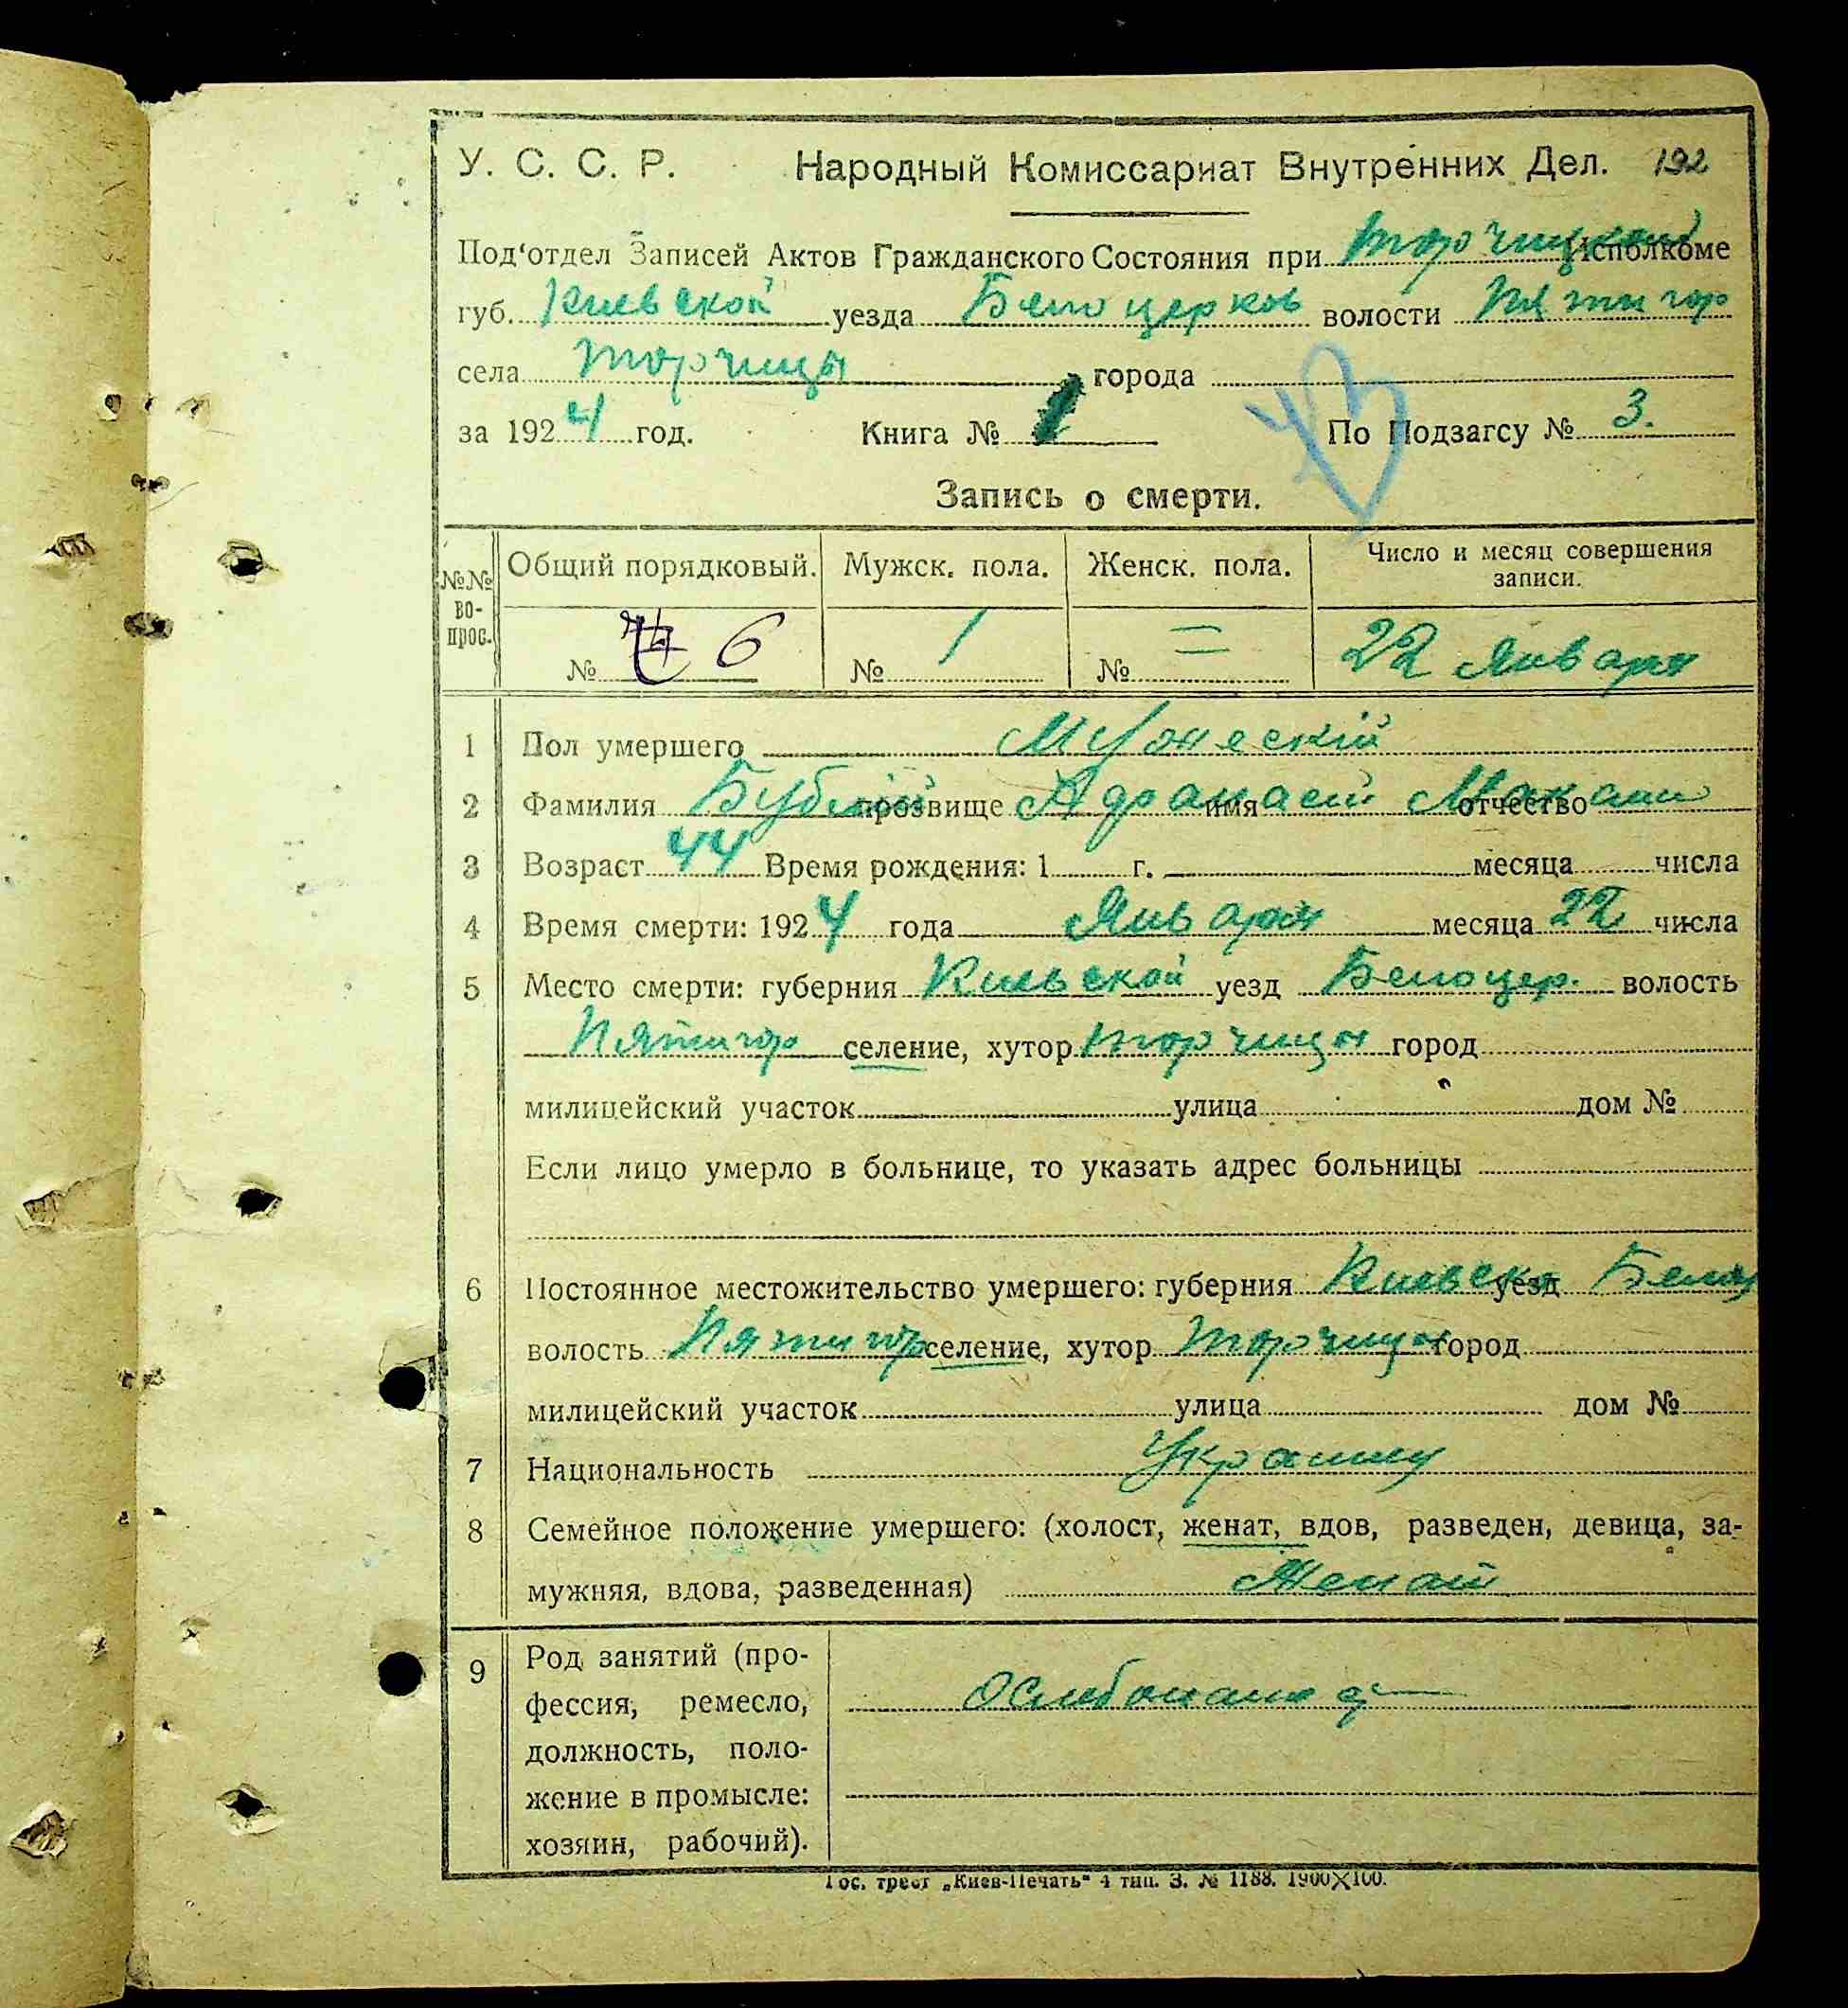 У. С. С. Р. Народный Комиссариат Внутренних Дел. 192
Под'отдел Записей Актов Гражданского Состояния при Торчицком Исполкоме
губ. Киевской уезда Белоцерков волости Пятигор
села Торчицы города
за 1924 год. Книга № 1 По Подзагсу № 3.
43
Запись о смерти.
№№ вопрос. Общий порядковый. Мужск. пола. Женск. пола. Число и месяц совершения
записи.
№ 6 № 1 № = 22 Января
1 Пол умершего Мужескій
2 Фамилия прозвище Афанасий имя отчество
3 Возраст 44 Время рождения: 1 г. месяца числа
4 Время смерти: 1924 года Января месяца 22 числа
5 Место смерти: губерния Киевской уезд Белоцер. волость
Пятигор селение, хутор Торчицы город
милицейский участок улица дом №
Если лицо умерло в больнице, то указать адрес больницы
6 Постоянное местожительство умершего: губерния Киевск уезд Белоц
волость Пятигор селение, хутор Торчицы город
милицейский участок улица дом №
7 Национальность
8 Семейное положение умершего: (холост, женат, вдов, разведен, девица, за-
мужняя, вдова, разведенная) Женат
9 Род занятий (про-
фессия, ремесло,
должность, поло-
жение в промысле:
хозяин, рабочий).
Гос. трест „Киев-Печать" 4 тип. З. № 1188. 1900×100.